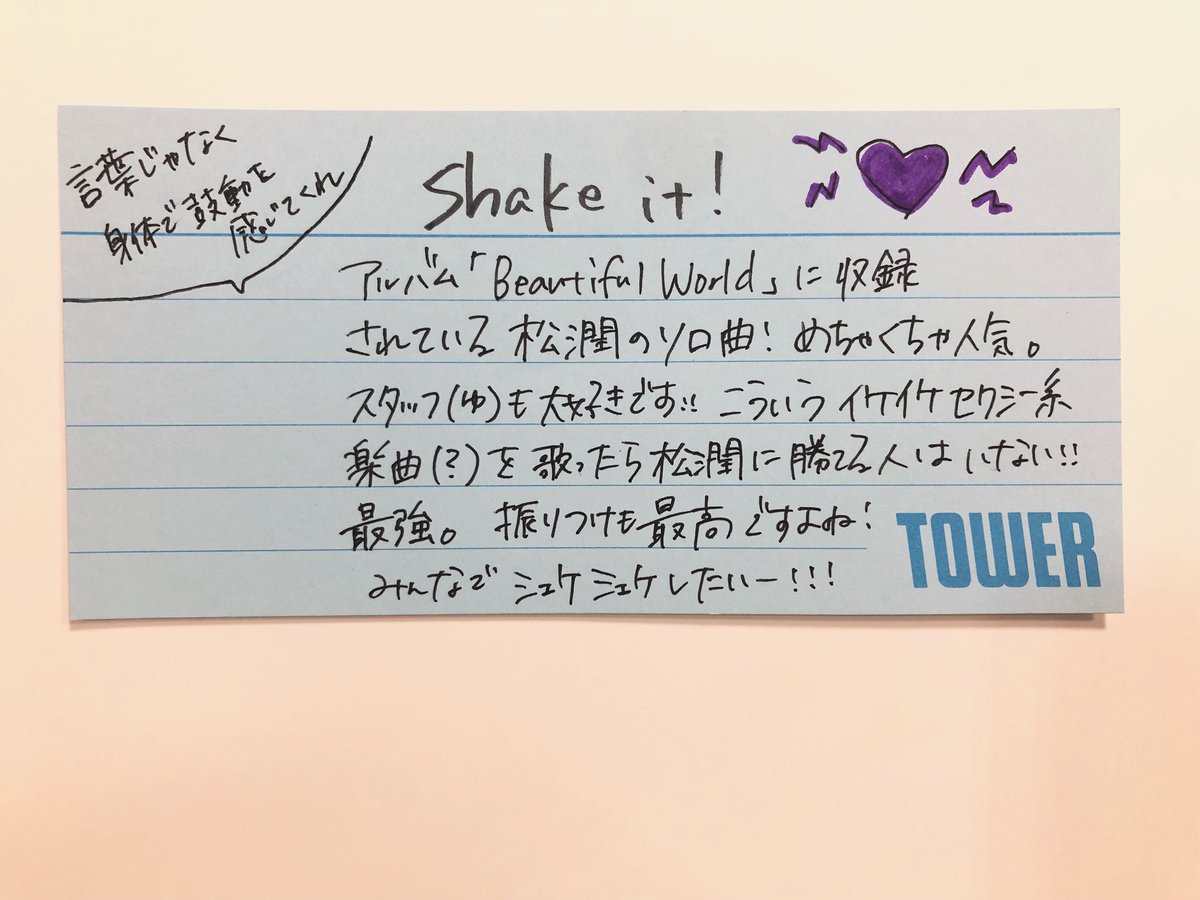 言葉じゃなく
身体で鼓動を
感じてくれ
Shake it!
アルバム「Beautiful World」に収録
されている松潤のソロ曲!めちゃくちゃ人気。
スタッフ(ゆ)も大好きです!! こういうイケイケセクシー系
楽曲(?)を歌ったら松潤に勝てる人はいない!!
最強。振りつけも最高ですよね!
みんなでシュケシュケしたいー!!!
TOWER